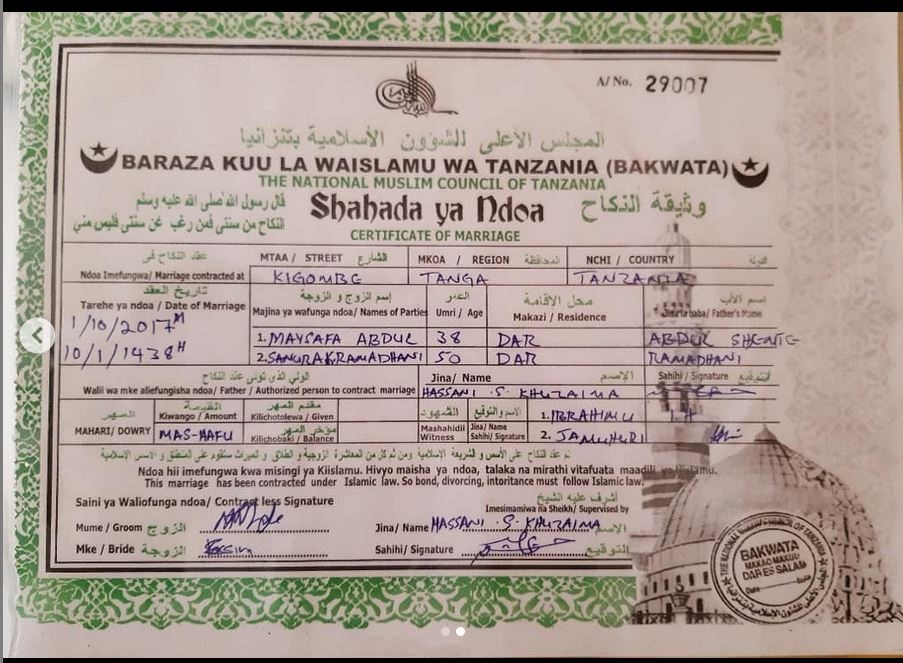 A/No. 29007
المجلس الأعلى للشؤون الأسلامية بتنزانيا
BARAZA KUU LA WAISLAMU WA TANZANIA (BAKWATA)
THE NATIONAL MUSLIM COUNCIL OF TANZANIA
قال رسول الله صلى الله عليه وسلم
النكاح من سنتى فمن رغب عن سنتى فليس منى
Shahada ya Ndoa
وثيقة النكاح
CERTIFICATE OF MARRIAGE
عقد النكاح فى
Ndoa Imefungwa/ Marriage contracted at
MTAA / STREET الشارع
KIGOMBE
MKOA / REGION المحافظة
TANGA
NCHI / COUNTRY الدولة
TANZANIA
تاريخ العقد
Tarehe ya ndoa / Date of Marriage
1/10/2017 M
10/1/1438 H
إسم الزوج و الزوجة
Majina ya wafunga ndoa/ Names of Parties
العمر
Umri / Age
محل الأقامة
Makazi / Residence
إسم الأب
Jina la baba/ Father's Name
1. MAYSAFA ABDUL 38 DAR ABDUL
2. SANURA RAMADHANI 50 DAR RAMADHANI
الولي الذى تولى عقد النكاح
Walii wa mke aliefungisha ndoa/ Father / Authorized person to contract marriage
Jina/ Name الإسم
HASSANI .S. KHUZAIMA
Sahihi / Signature التوقيع
المهر
MAHARI/ DOWRY
القيمة
Kiwango / Amount
MAS-HAFU
مقدم المهر
Kilichotolewa / Given
مؤخر المهر
Kilichobaki / Balance
الشهود
Mashahidi
Witness
الاسم والتوقيع
Jina/ Name
Sahihi/ Signature
1. IBRAHIMU
2. JAMUHURI
Ndoa hii imefungwa kwa misingi ya Kiislamu. Hivyo maisha ya ndoa, talaka na mirathi vitafuata maadili ya Kiislamu.
This marriage has been contracted under Islamic law. So bond, divorcing, intoritance must follow Islamic law.
Saini ya Waliofunga ndoa/ Contract less Signature
أشرف عليه الشيخ
Imesimamiwa na Sheikh/ Supervised by
Mume / Groom الزوج
Jina / Name HASSANI .S. KHUZAIMA الإسم
Mke / Bride الزوجة
Sahihi/ Signature التوقيع
THE NATIONAL MUSLIM COUNCIL OF TANZANIA
BAKWATA
MAKAO MAKUU
DAR ES SALAM
Date